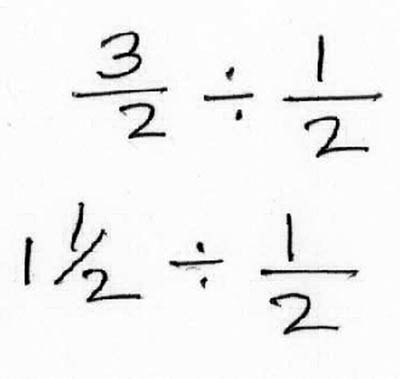 3/2 ÷ 1/2
1 1/2 ÷ 1/2